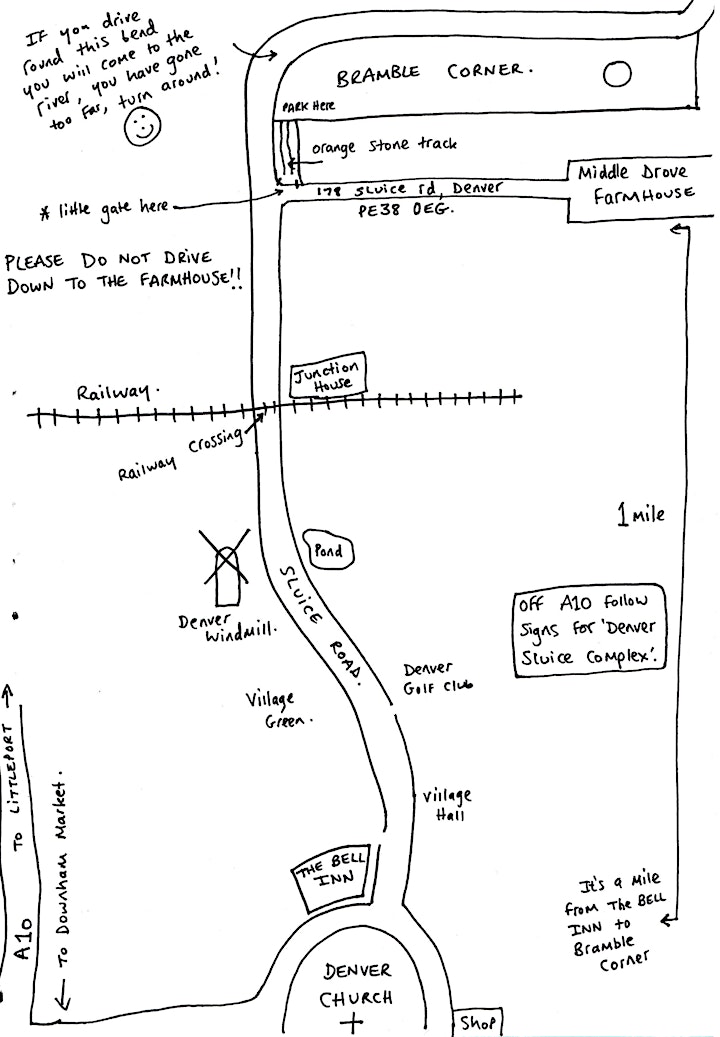 If you drive
round this bend
you will come to the
river, you have gone
too far, turn around!
BRAMBLE CORNER.
PARK Here
orange stone track
178 Sluice rd, Denver
PE38 0EG.
Middle Drove
FARMHOUSE
* little gate here
PLEASE DO NOT DRIVE
DOWN TO THE FARMHOUSE!!
Junction
House
Railway.
Railway Crossing
1 Mile
Pond
SLUICE ROAD.
Denver
Windmill.
OFF A10 Follow
Signs for 'Denver
Sluice Complex'.
Denver
Golf Club
Village
Green.
Village
Hall
A10 TO LITTLEPORT
To Downham Market.
THE BELL
INN
It's a Mile
from The BELL
INN to
Bramble
Corner
DENVER
CHURCH
Shop